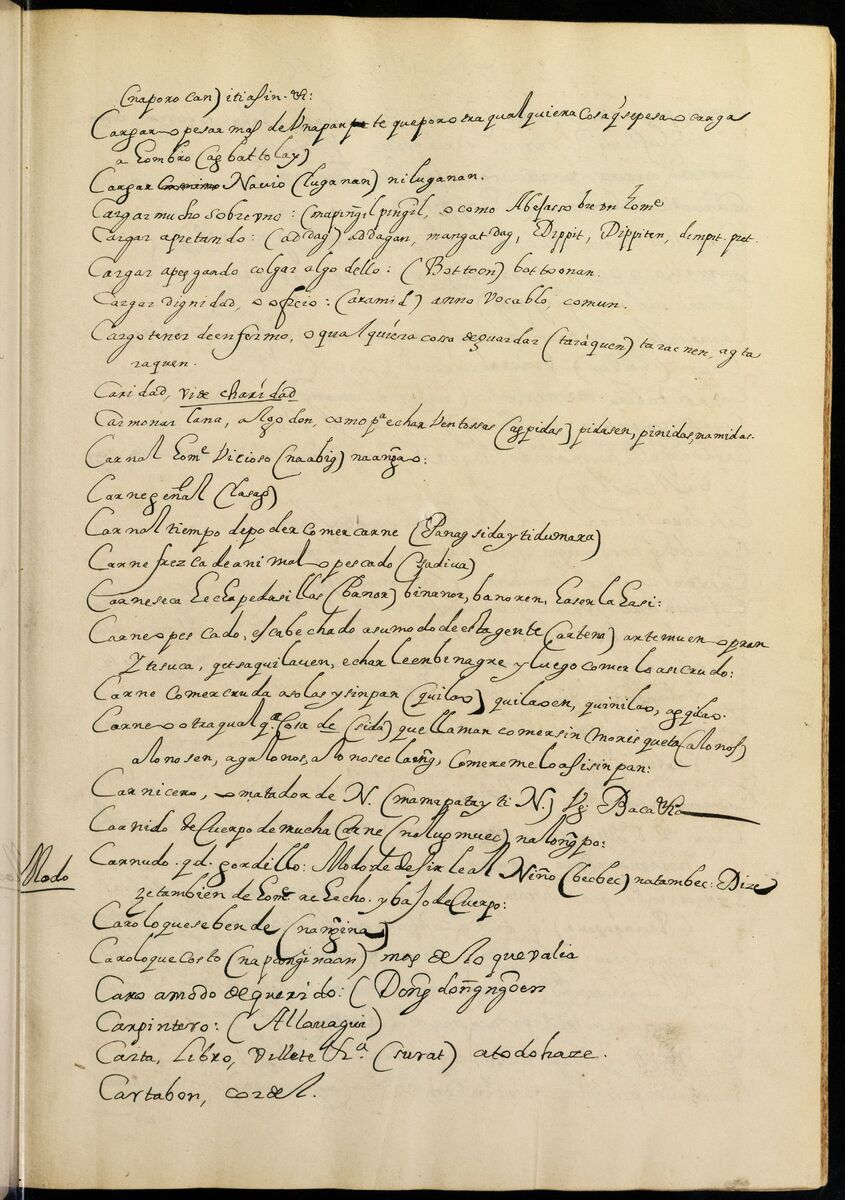 (naporo can) itiasin. &:
Cargar o pesar mas de Vna parte que por otra qual quiera cosa q̃ se pesa o carga
a hombro (agbattolay)
Cargar Navio (luganan) niluganan.
Cargar mucho sobre vno: (mapingil pingil, o como Abejasso bre vn home
Cargar apretando: (addag) addagan, mangatdag, Dippit, Dippiten, dimpit. pret.
Cargar apegando colgar algo dello: (Bottoon) bottoonan.
Cargar dignidad, o officio: (aramid) anno vocablo, comun.
Cargo tener de enfermo, o qual quiera cossa de guardar (taraquen) taracnen, agta
raquen.
Caridad, vide charidad
Carmonar lana, algodon, como pa echar Ventossas (agpidas) pidasen, pinidas, namidas.
Carnal home Vicioso (naabig) naangao:
Carne gen̄al (lasag)
Carnal tiempo de poder comer carne (Panagsiday ti dumara)
Carne frezca de animal o pescado (sadiua)
Carne seca hecha pedasillas (banor) binanor, banoren, haserla hasi:
Carne o pescado, escabechado a su modo de esta gente (artem) artemuen o pran
Ztisuca, quetsa quilauen, echarle en benagre y luego comerlo asi crudo:
Carne Comer cruda a solas y sin pan (quilao) quilaoen, quinilao, agquilao.
Carne o otra qual qa Cosa de (sida) que llaman comer sin morisqueta (alonos)
alonosen, agalonos, alonosec laeng, Comereme lo asi sin pan:
Carnicero, o matador de N. (mamapatay ti N.) Vg Baca &a
Carnido de Cuerpo de mucha Carne (nalugmuec) nalongpo:
Modo Carnudo. q.d. gordillo: Modo de desirle al Niño (becbec) natambec: Dize
ze tambien de home rehecho. y bajo de Cuerpo:
Caro lo que se bende (nangina)
Caro lo que costo (napanginaan) mas de lo que valia
Caro a modo de querido: (Dong dongngoen
Carpintero: (Allauagui)
Carta, Libro, villete &a. (surat) a todo haze.
Cartabon, cordel.